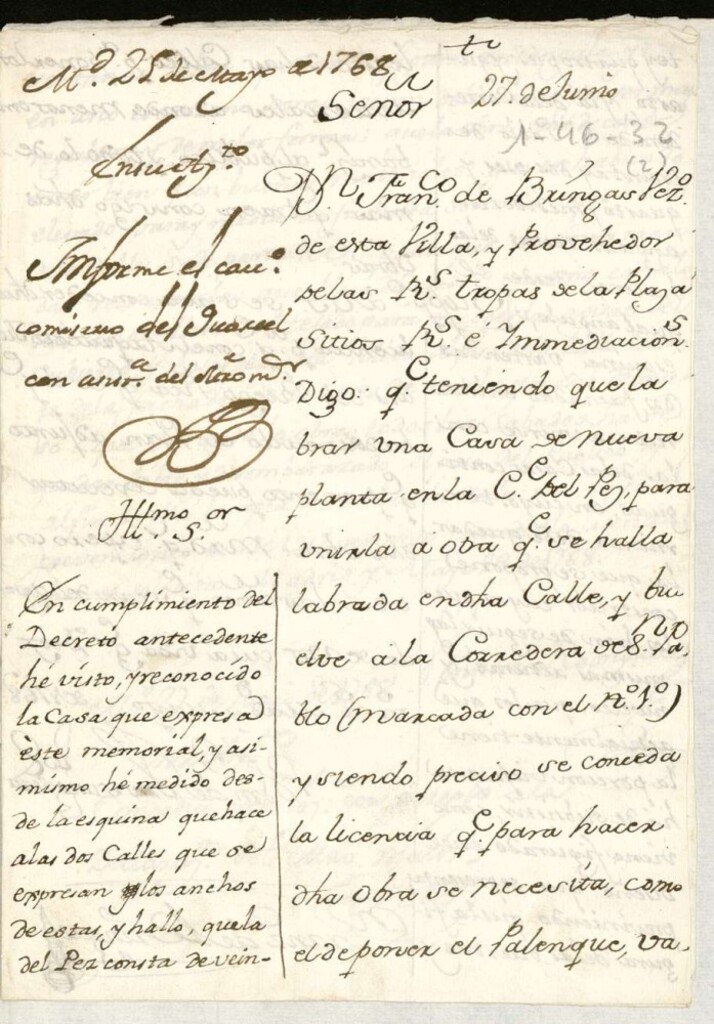 M.d 25 de Mayo de 1768
En su Ay.to
Informe el cau.o
comisario del Quartel
con asist.a del Mtro m.r
Ill.mo S.or
En cumplimiento del
Decreto antecedente
hé visto, y reconocido
la Casa que expresa
este memorial, y asi-
mismo hé medido des-
de la esquina que hace
a las dos Calles que se
expresan y los anchos
de estas, y hallo, que la
del Pez consta de vein-
Señor
27. de Junio
1-46-32
(2)
D.n Fran.co de Bringas Vez.o
de esta Villa, y Provehedor
de las R.s tropas de la Plaza
Sitios R.s é Immediacion.s
Digo: q.e teniendo que la
brar vna Casa de nueva
planta en la C.e del Pez, para
vnirla a otra q.e se halla
labrada en dha Calle, y bu
elve a la Corredera de S.n Pa-
blo (marcada con el N.o 1.o)
y siendo preciso se conceda
la licencia q.e para hacer
dha obra se necesita, como
el de poner el Palenque, va-